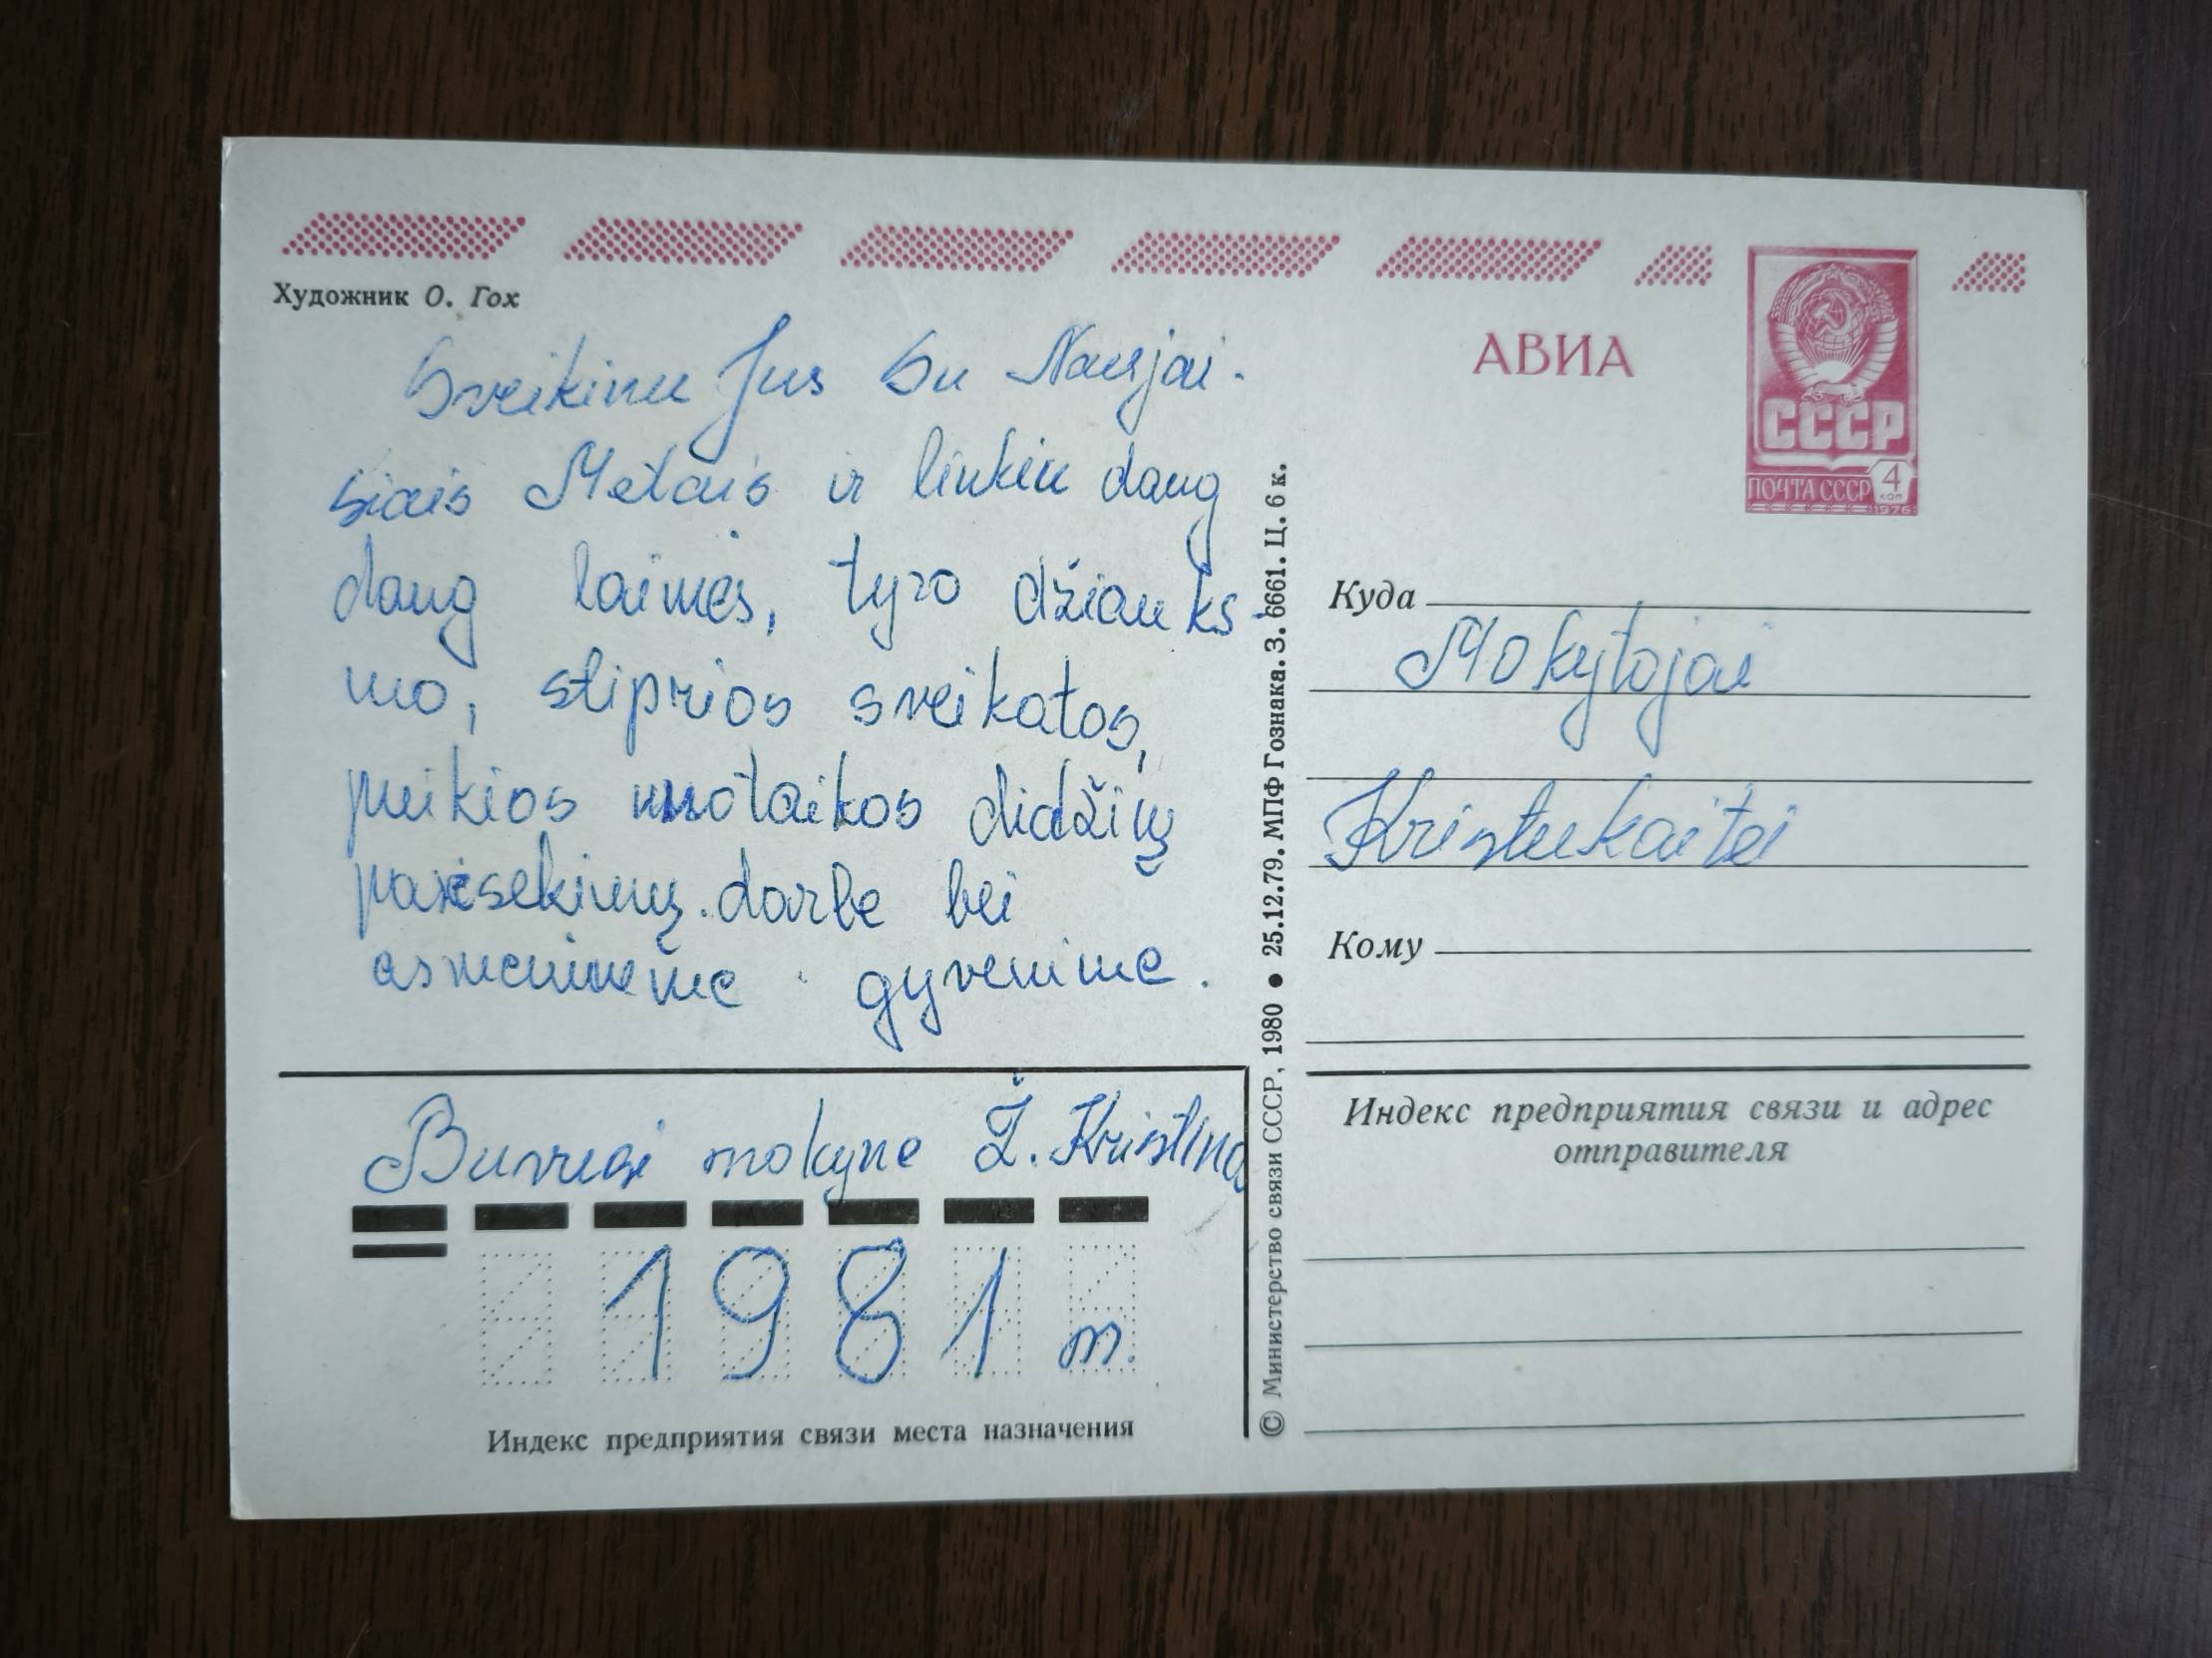 Художник О. Гох
Sveikinu Jus su Naujai-
siais Metais ir linkiu daug
daug laimės, tyro džiauks-
mo, stiprios sveikatos,
puikios nuotaikos didžių
pasisekimų darbe bei
asmeniniame gyvenime.
Buvusi mokynė Ž. Kristina
1981 m.
Индекс предприятия связи места назначения
© Министерство связи СССР, 1980 ● 25.12.79. МПФ Гознака. З. 6661. Ц. 6 к.
АВИА
СССР
ПОЧТА СССР 4 коп
1976
Куда
Mokytojai
Kristukaitei
Кому
Индекс предприятия связи и адрес
отправителя